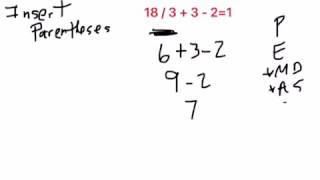 Insert
Parentheses
18 / 3 + 3 - 2=1
6 + 3 - 2
9 - 2
7
P
E
MD
AS